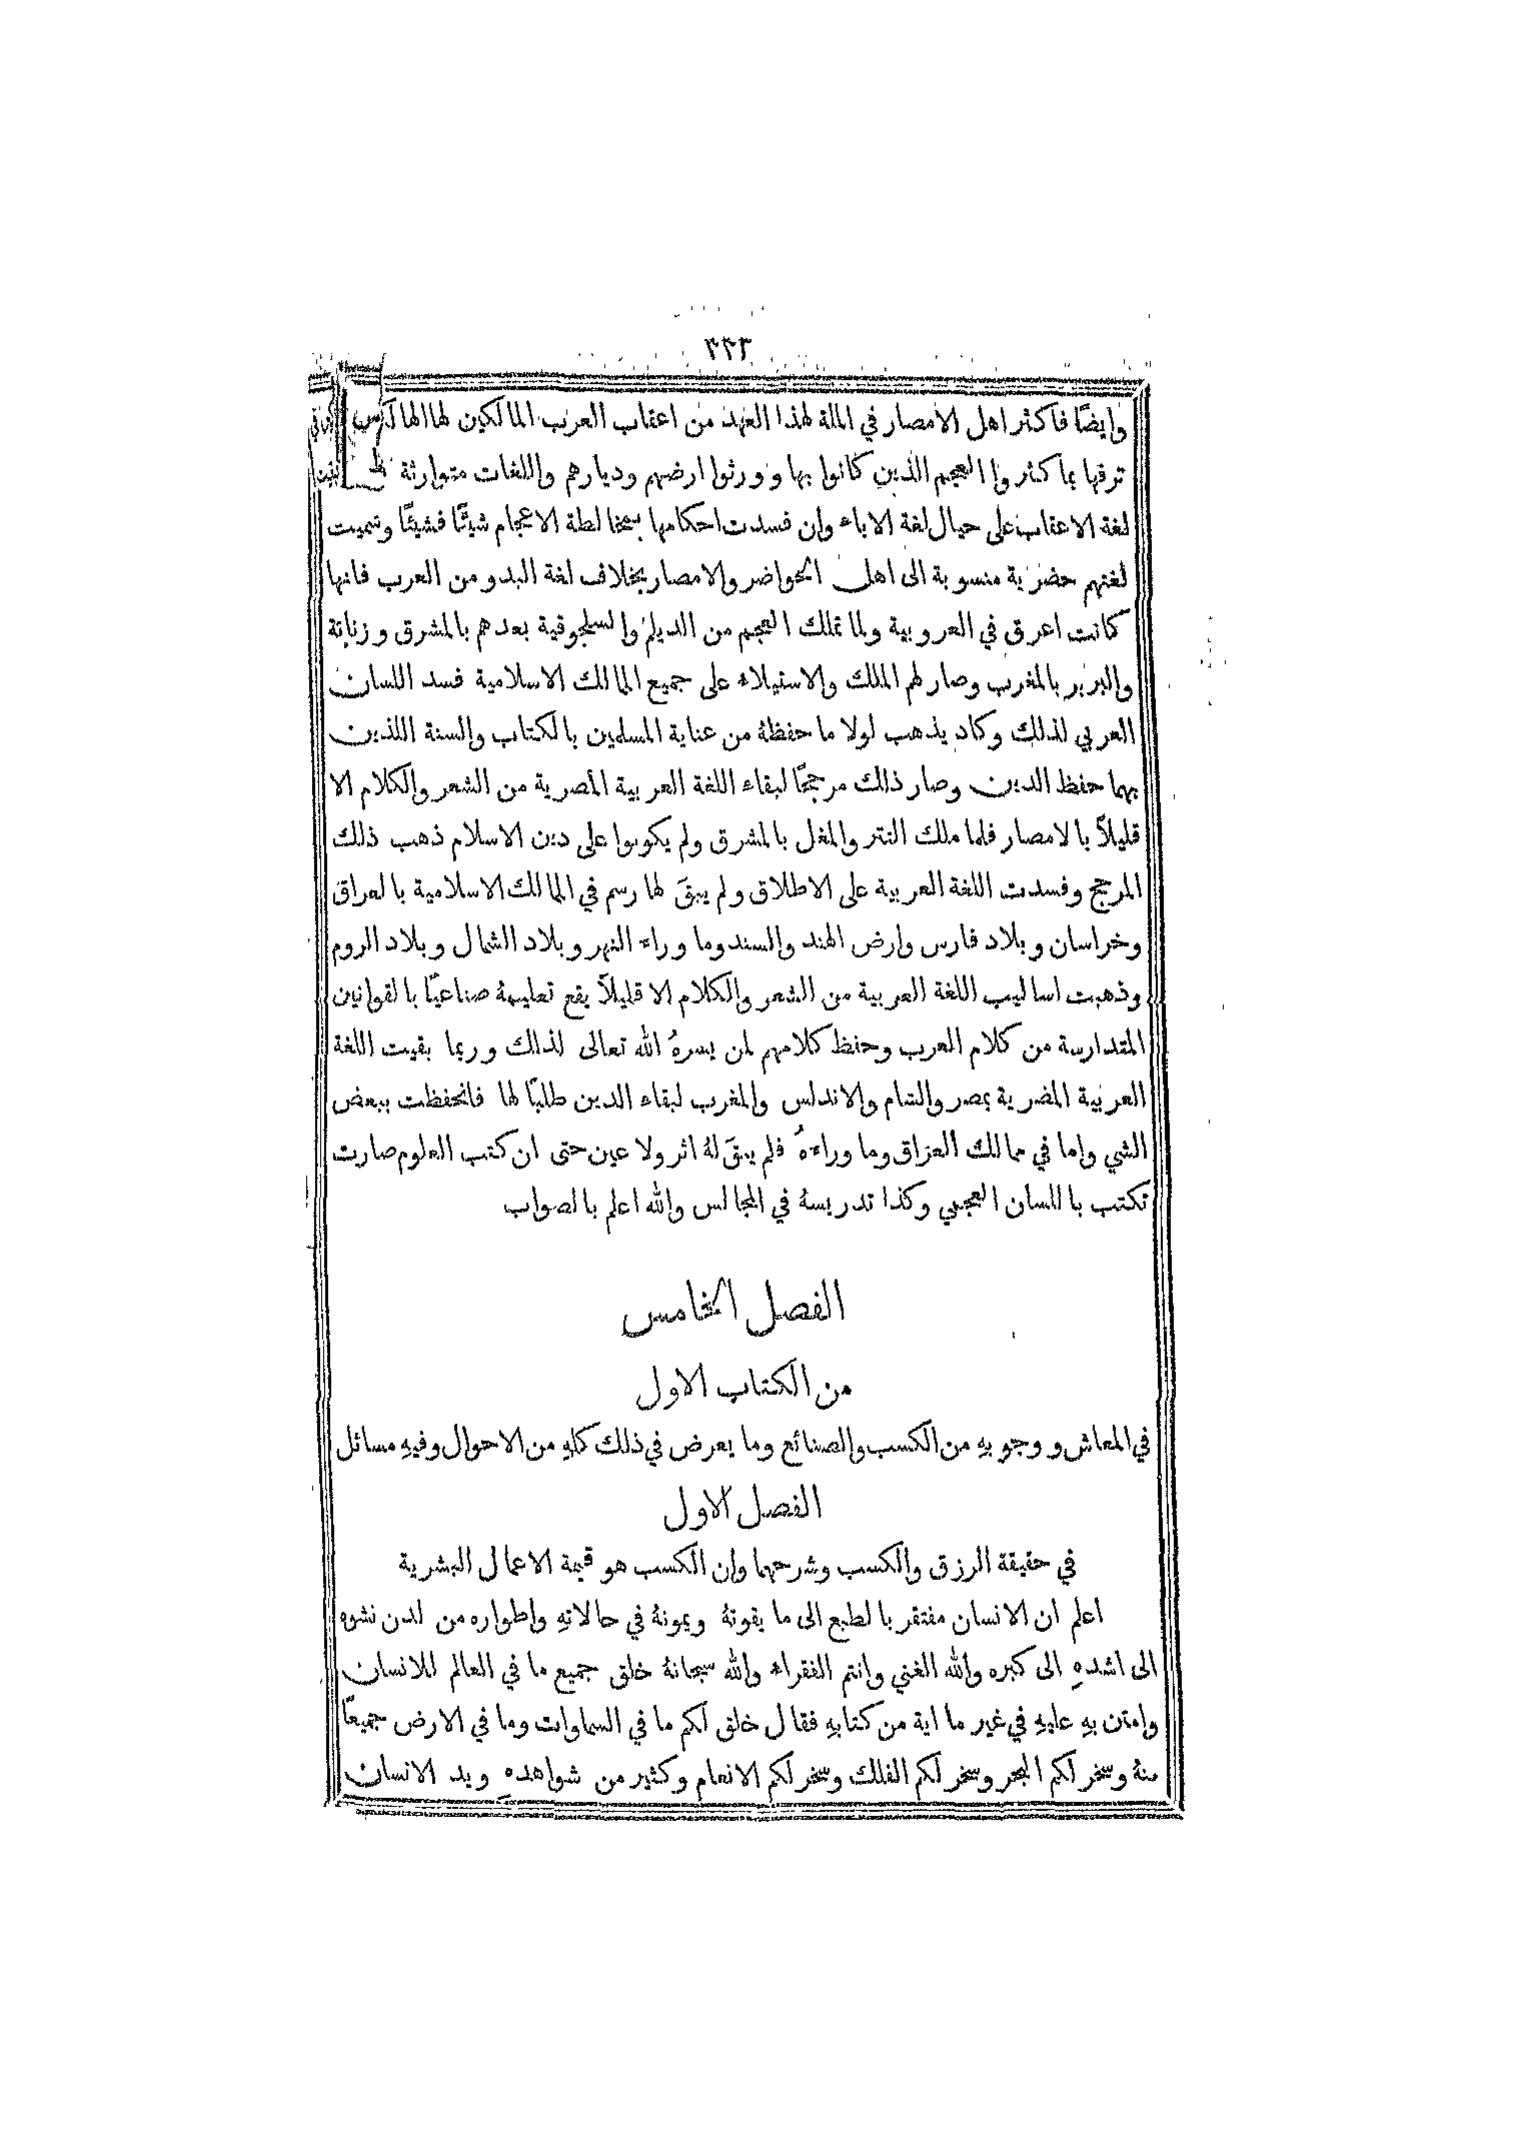 ٣٣٣
وايضًا فاكثر اهل الامصار في الملة لهذا العهد من اعقاب العرب المالكين لها الهالكين
ترفها بما كثروا العجم الذين كانوا بها وورثوا ارضهم وديارهم واللغات متوارثة
لغة الاعقاب على حيال لغة الاباء وان فسدت احكامها بمخالطة الاعجام شيئًا فشيئًا وسميت
لغتهم حضرية منسوبة الى اهل الحواضر والامصار بخلاف لغة البدو من العرب فانها
كانت اعرق في العروبية ولما تملك العجم من الديلم والسلجوقية بعدهم بالمشرق وزناتة
والبربر بالمغرب وصار لهم الملك والاستيلاء على جميع الممالك الاسلامية فسد اللسان
العربي لذلك وكاد يذهب لولا ما حفظهُ من عناية المسلمين بالكتاب والسنة اللذين
بهما حفظ الدين وصار ذلك مرجحًا لبقاء اللغة العربية المضرية من الشعر والكلام الا
قليلاً بالامصار فلما ملك التتر والمغل بالمشرق ولم يكونوا على دين الاسلام ذهب ذلك
المرجح وفسدت اللغة العربية على الاطلاق ولم يبقَ لها رسم في الممالك الاسلامية بالعراق
وخراسان وبلاد فارس وارض الهند والسند وما وراء النهر وبلاد الشمال وبلاد الروم
وذهبت اساليب اللغة العربية من الشعر والكلام الا قليلاً يقع تعليمهُ صناعيًا بالقوانين
المتدارسة من كلام العرب وحفظ كلامهم لمن يسرهُ الله تعالى لذلك وربما بقيت اللغة
العربية المضرية بمصر والشام والاندلس والمغرب لبقاء الدين طلبًا لها فانحفظت ببعض
الشي واما في ممالك العراق وما وراءهُ فلم يبقَ لهُ اثر ولا عين حتى ان كتب العلوم صارت
تكتب باللسان العجمي وكذا تدريسهُ في المجالس والله اعلم بالصواب
الفصل الخامس
من الكتاب الاول
في المعاش ووجوبهِ من الكسب والصنائع وما يعرض في ذلك كلهِ من الاحوال وفيهِ مسائل
الفصل الاول
في حقيقة الرزق والكسب وشرحهما وان الكسب هو قيمة الاعمال البشرية
اعلم ان الانسان مفتقر بالطبع الى ما يقوتهُ ويمونهُ في حالاتهِ واطواره من لدن نشوه
الى اشدهِ الى كبره والله الغني وانتم الفقراء والله سبحانهُ خلق جميع ما في العالم للانسان
وامتن بهِ عليهِ في غير ما اية من كتابهِ فقال خلق لكم ما في السماوات وما في الارض جميعًا
منهُ وسخر لكم البحر وسخر لكم الفلك وسخر لكم الانعام وكثير من شواهدهِ ويد الانسان